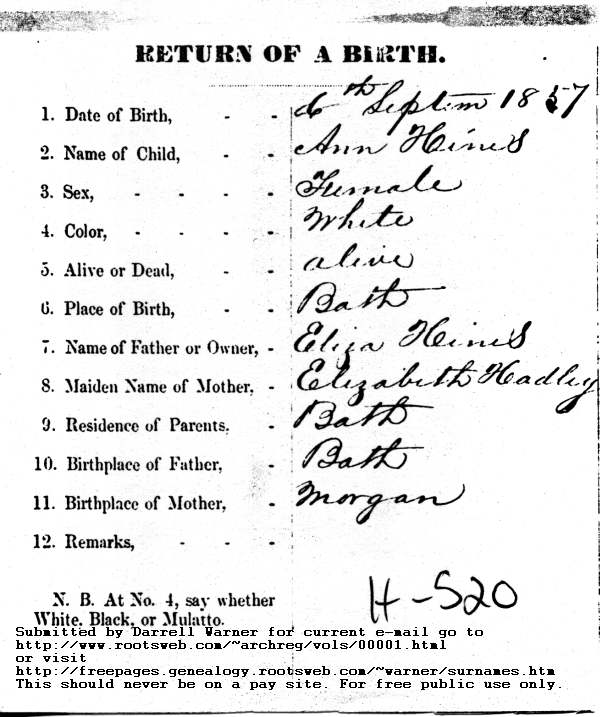 RETURN OF A BIRTH.
1. Date of Birth, - - 6th Septem 1857
2. Name of Child, - - Ann Hines
3. Sex, - - - - Female
4. Color, - - - - White
5. Alive or Dead, - - alive
6. Place of Birth, - - Bath
7. Name of Father or Owner, - Eliza Hines
8. Maiden Name of Mother, - Elizabeth Hadley
9. Residence of Parents, - Bath
10. Birthplace of Father, - Bath
11. Birthplace of Mother, - Morgan
12. Remarks, - - -
N. B. At No. 4, say whether
White, Black, or Mulatto.
H-520
Submitted by Darrell Warner for current e-mail go to
http://www.rootsweb.com/~archreg/vols/00001.html
or visit
http://freepages.genealogy.rootsweb.com/~warner/surnames.htm
This should never be on a pay site. For free public use only.